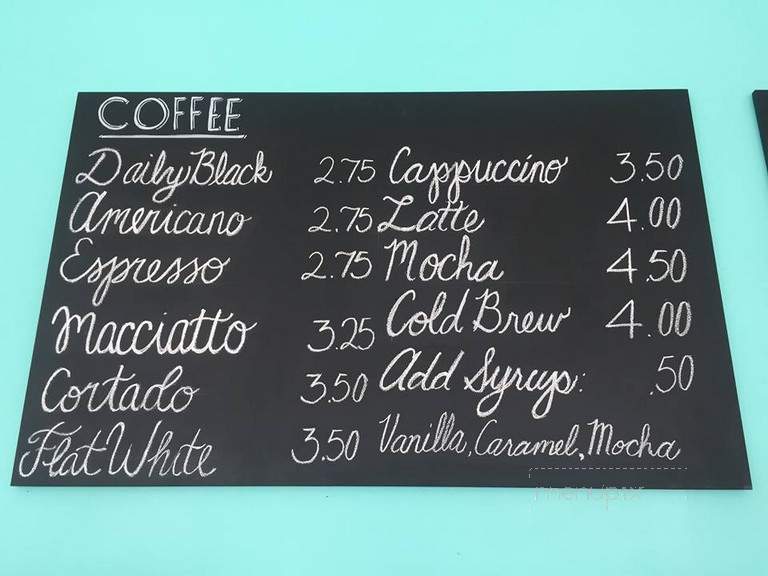 COFFEE
Daily Black 2.75
Americano 2.75
Espresso 2.75
Macciatto 3.25
Cortado 3.50
Flat White 3.50
Cappuccino 3.50
Latte 4.00
Mocha 4.50
Cold Brew 4.00
Add Syrups: .50
Vanilla, Caramel, Mocha
menupix